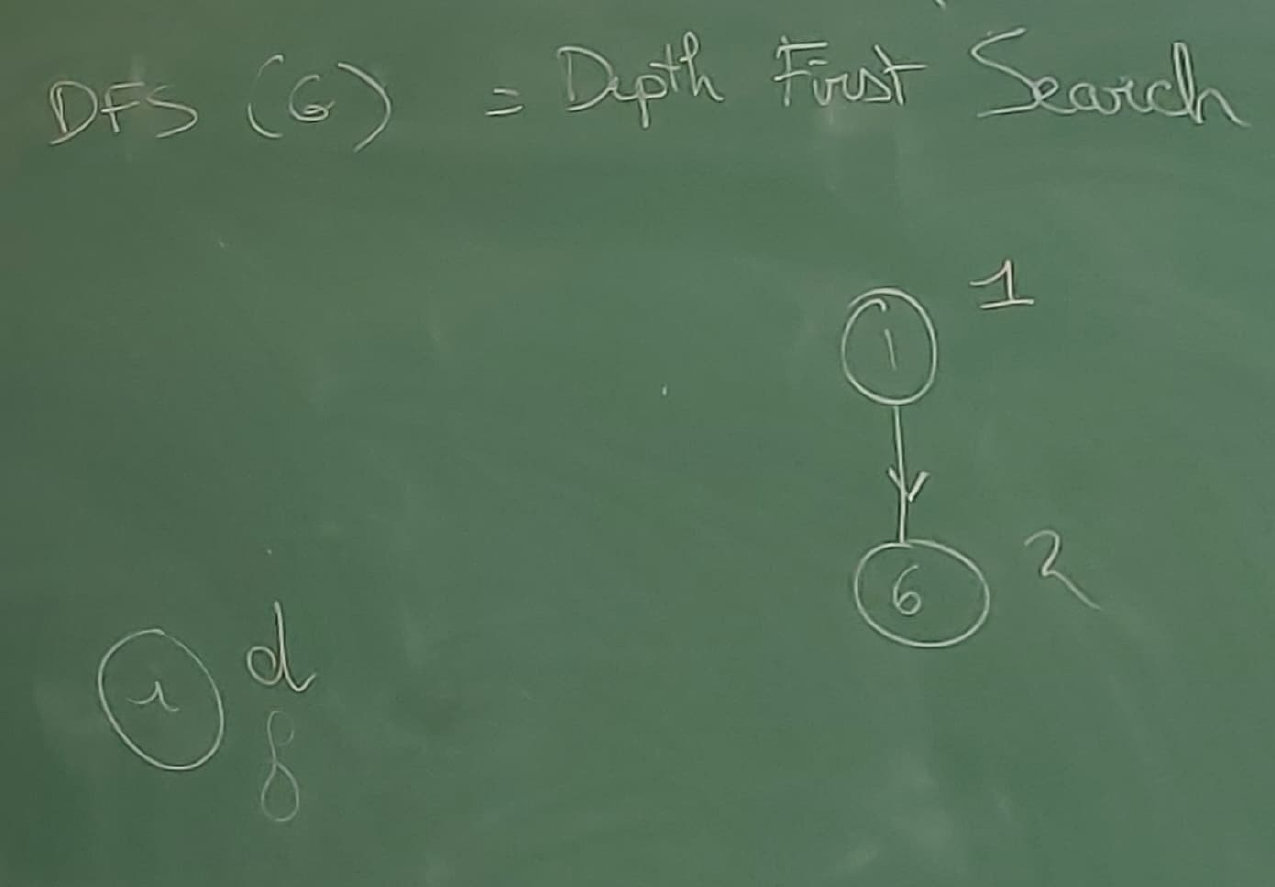 DFS (G) = Depth First Search
1
1
6 2
r d
f